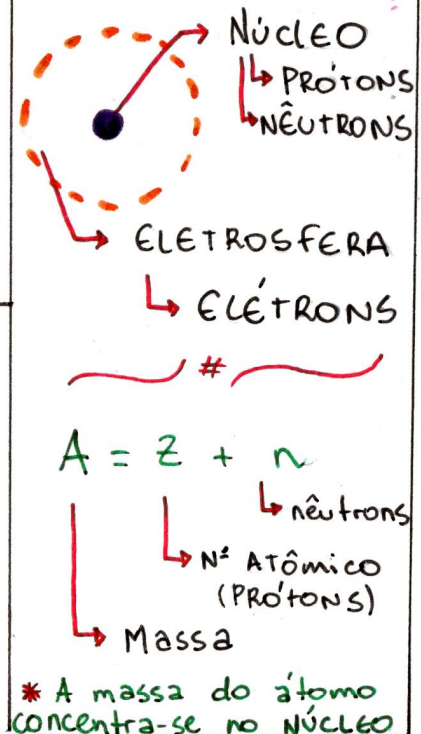 NÚCLEO
PRÓTONS
NÊUTRONS
ELETROSFERA
ELÉTRONS
#
A = Z + n
nêutrons
Nº ATÔMICO
(PRÓTONS)
Massa
* A massa do átomo
concentra-se no NÚCLEO